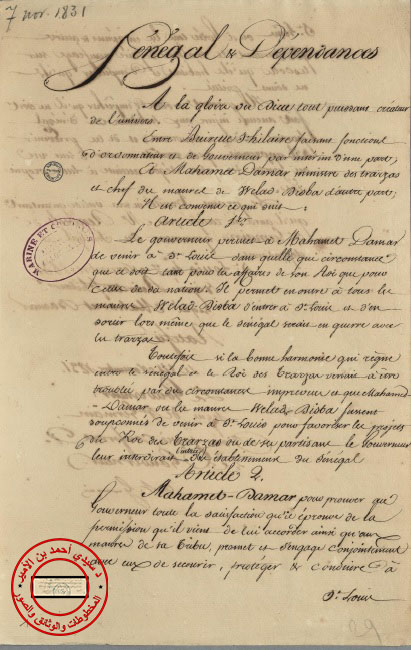 7 nov. 1831
Sénégal & Dépendances
A la gloire du Dieu tout puissant créateur
de l'univers.
Entre Beirgue St hilaire faisant fonctions
d'ordonnateur et de Gouverneur par interim d'une part,
et Mahamet Damar ministre des trarzas
et chef du maures de Welad Bioba d'autre part;
Il est convenu ce qui suit.
Article 1er
Le gouverneur permet à Mahamet Damar
de venir à St Louis dans quelle que circonstance
que ce soit tant pour les affaires de son Roi que pour
celles de sa nation. Il permet en outre à tous les
maures Welad Bioba d'entrer à St Louis et d'en
sortir lors même que le Sénégal serait en guerre avec
les trarzas
Toutefois si la bonne harmonie qui règne
entre le Sénégal et le Roi des Trarzas venait à être
troublée par des circonstances imprévues et que Mahamed
Damar ou les maures Welad Bioba fussent
soupçonnés de venir à St Louis pour favoriser les projets
du Roi des Trarzas ou de ses partisans le Gouverneur
leur interdirait l'entrée des établissements du Sénégal
Article 2.
Mahamet-Damar pour prouver au
Gouverneur toute la satisfaction qu'il éprouve de la
permission qu'il vient de lui accorder ainsi qu'aux
maures de sa tribu, promet et s'engage conjointement
avec eux de secourir, protéger & conduire à
St Louis
MARINE ET COLONIES
د. سيدي أحمد بن الأمير
المخطوطات والوثائق والصور